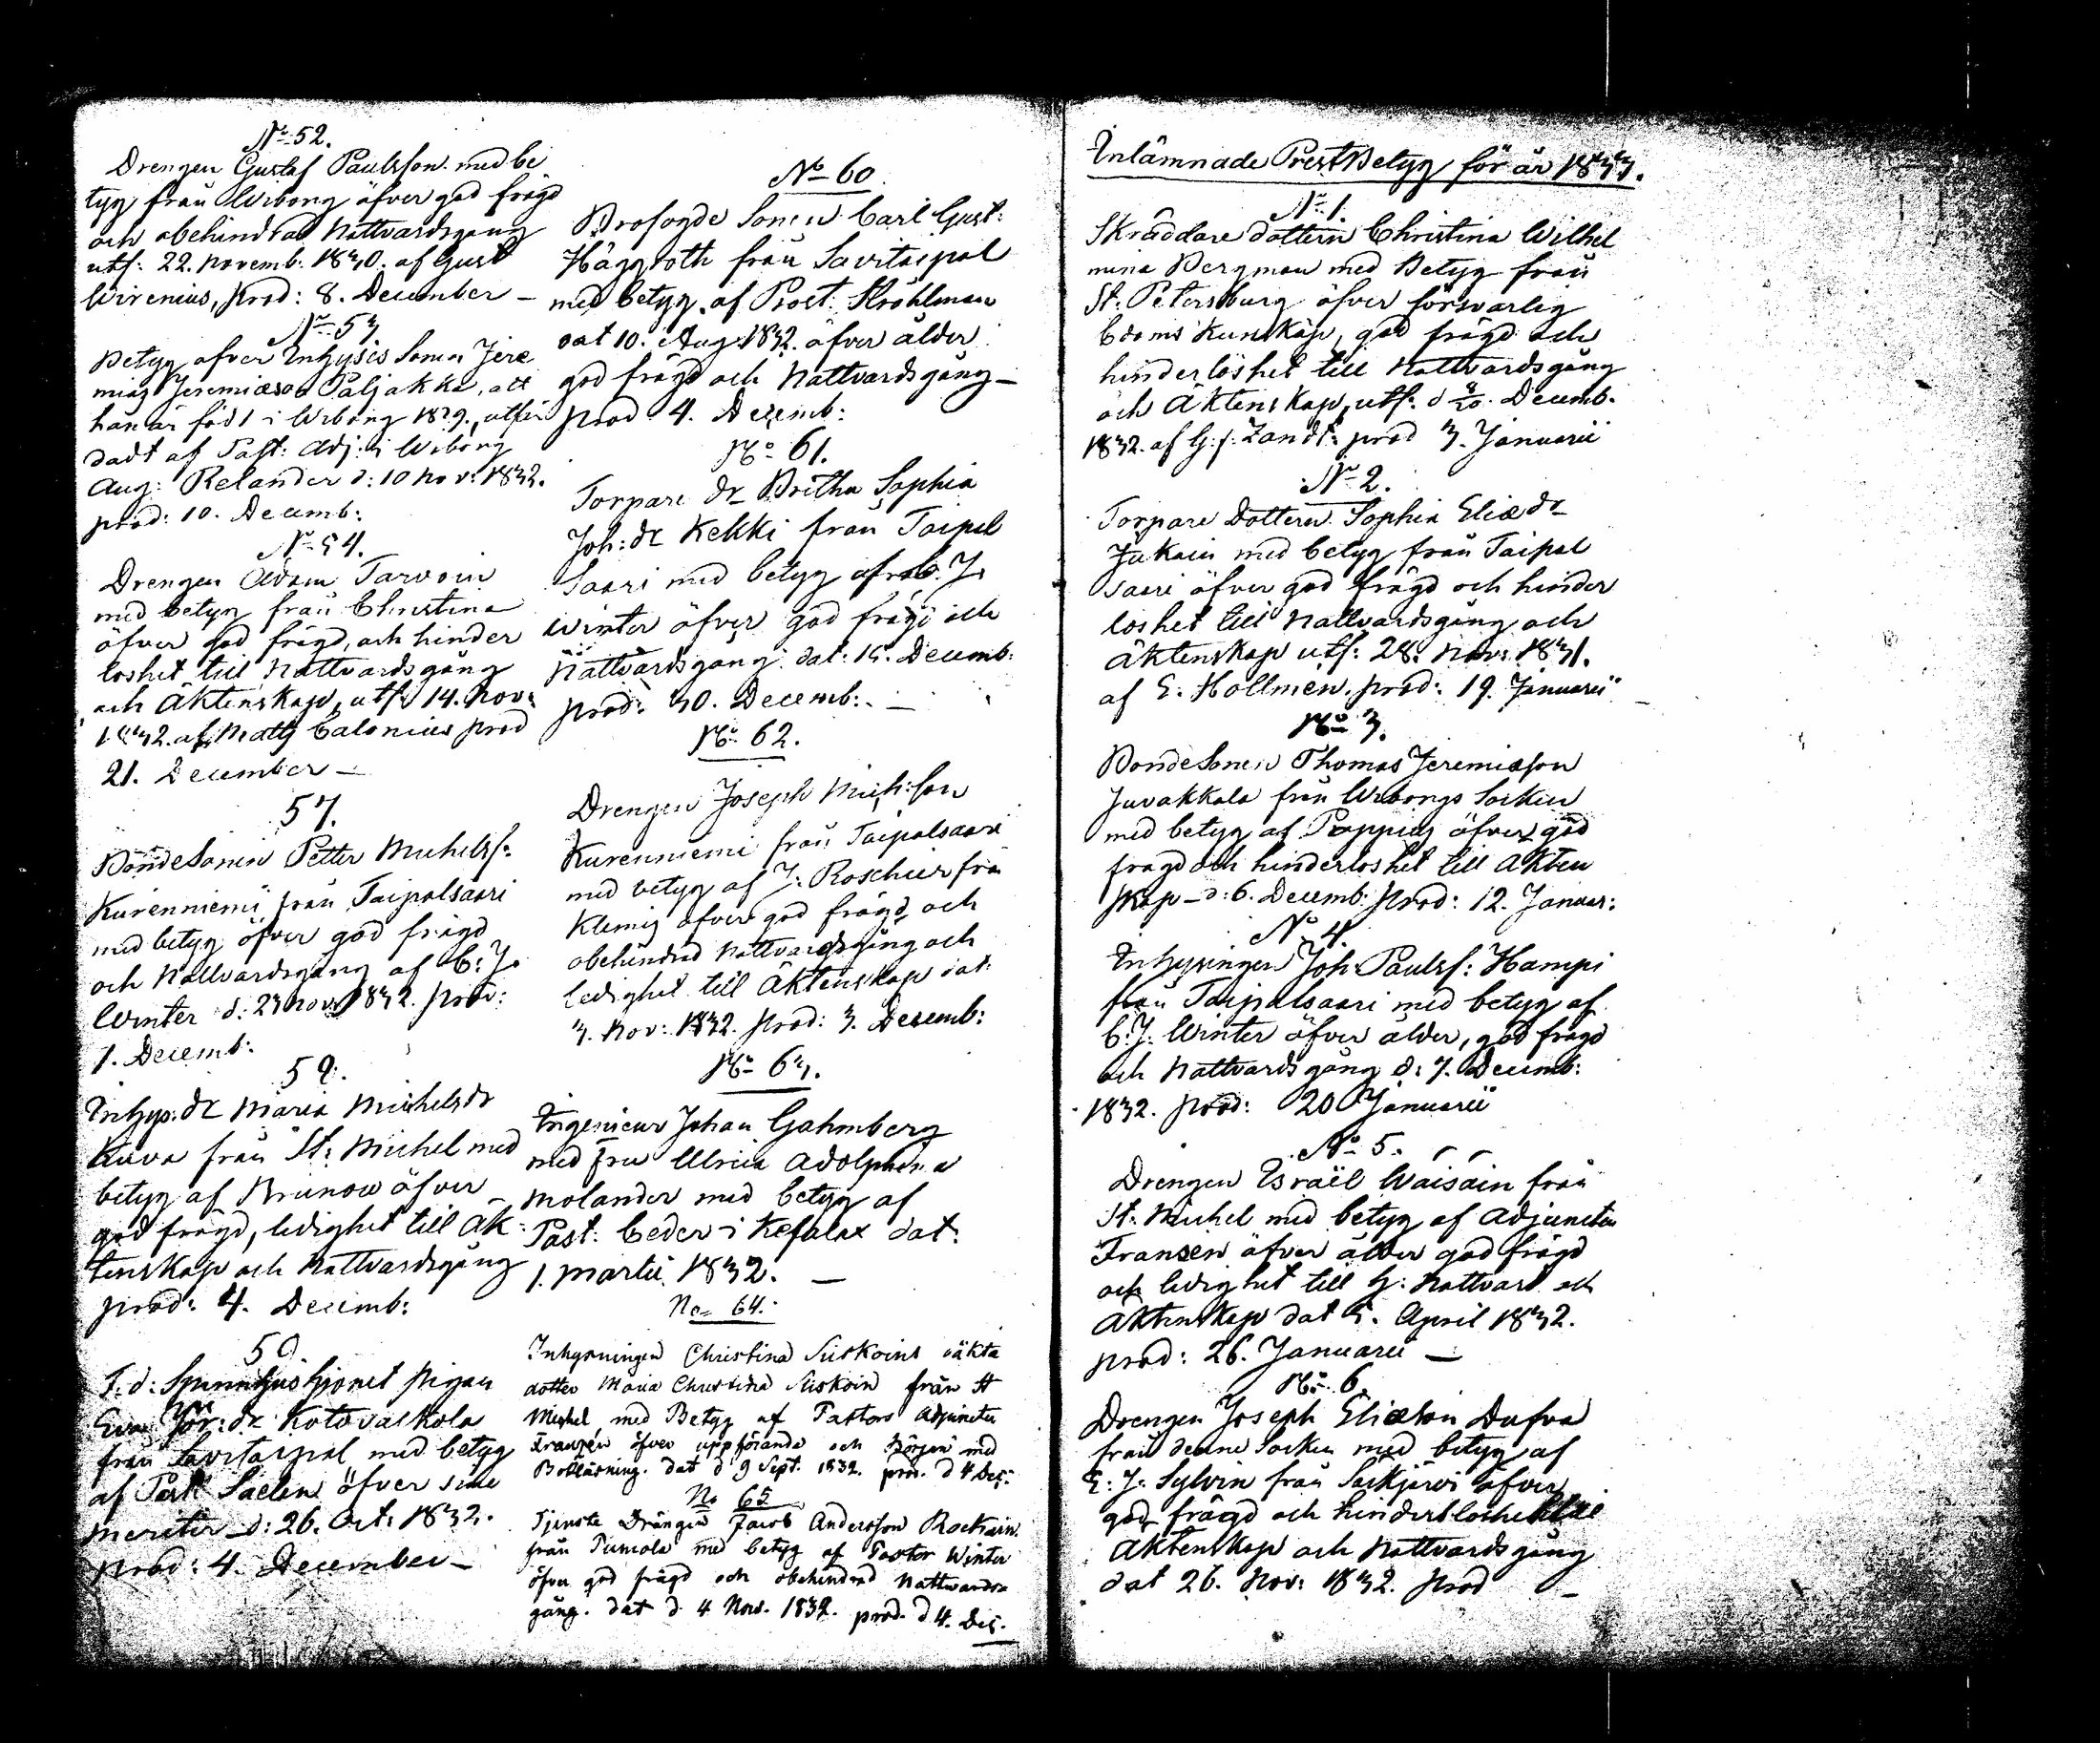 No 52.
Drengen Gustaf Paulsson med be
tyg från Wiborg öfver god frägd
och obehindrad Nattvardsgång
utf: 22. Novemb: 1830. af Gust
Wirenius, prod: 8. December –
No 53
Betyg öfver Inhyses Sonen Jere
mias Jeremiæson Paljakka, att
han är född i Wiborg 1829., utfär
dadt af Past: Adj: i Wiborg
Aug: Relander d: 10 Nov: 1832.
prod: 10. Decemb:
No 54.
Drengen Adam Tarvoin
med betyg från Christina
öfver god frägd, och hinder
löshet till Nattvardsgång
och Äktenskap, utf: 14. Nov:
1832. af Matts Calonius prod
21. December –
57.
BondeSonen Petter Michelsf:
Kurenniemi från Taipalsaari
med betyg öfver god frägd
och Nattvardsgång af C: J.
Winter d: 23 Nov: 1832. prod:
1. Decemb:
58.
Inhys: dr Maria Michelsdr
Kuva från St: Michel med
betyg af Brunow öfver
god frägd, ledighet till Äk-
tenskap och Nattvardsgång
prod: 4. Decemb:
59
F: d: Spinnhushjonet Pigan
Eva Jör: dr Kotovaskola
från Savitaipal med betyg
af Past: Saelen öfver sine
meriter d: 26. Oct: 1832.
prod: 4. December –
No 60
Profogde Sonen Carl Gust:
Häggroth från Savitaipal
med betyg af Prost: Ströhlman
dat 10. Aug 1832. öfver ålder
god frägd och Nattvardsgång –
prod 4. Decemb:
No 61.
Torpare dr Britha Sophia
Joh: dr Kekki från Taipal
Saari med betyg af C. J.
Winter öfver god frägd och
Nattvardsgång dat: 15. Decemb:
prod: 30. Decemb: –
No 62.
Drengen Joseph Mich: son
Kurenniemi från Taipalsaari
med betyg af J: Roschier från
Klemis öfver god frägd och
obehindrad Nattvardsgång och
ledighet till Äktenskap dat:
3. Nov: 1832. prod: 3. Decemb:
No 63.
Ingenieur Johan Gahmberg
med Fru Ulrica Adolphina
Molander med betyg af
Past: Ceder i Kefalax dat:
1. Martii 1832. –
No 64.
Inhysningen Christina Siiskoins oäkta
dotter Maria Christina Siiskoin från St
Michel med Betyg af Pastors Adjuncten
Franzén öfver uppförande och början med
Bokläsning. dat d 9 Sept. 1832. prod. d 4 Dec:
No 65
Tjenste Drängen Jacob Andersson Rockain
från Pumola med betyg af Pastor Winter
öfver god frägd och obehindrad Nattvards
gång. dat d. 4 Nov. 1832. prod. d 4. Dec.
Inlämnade PrestBetyg för år 1833.
No 1.
Skräddare dottern Christina Wilhel
mina Bergman med Betyg från
St: Petersburg öfver försvarlig
Cdoms Kunskap, god frägd och
hinderlöshet till Nattvardsgång
och Äktenskap, utf: d 8/20. Decemb.
1832. af G: f: Zandt: prod 3. Januarii
No 2.
Torpare Dottern Sophia Eliædr
Jukain med betyg från Taipal
saari öfver god frägd och hinder
löshet till Nattvardsgång och
Äktenskap utf: 28. Nov: 1831.
af E: Hollmén. prod: 19. Januarii
No 3.
BondeSonen Thomas Jeremiæson
Juvakkala från Wiborgs Socken
med betyg af Poppius öfver god
frägd och hinderloshet till Äkten
skap – d: 6. Decemb: prod: 12. Januar:
No 4.
Inhysingen Joh: Paulsf: Hampi
från Taipalsaari med betyg af
C: J: Winter öfver ålder, god frägd
och Nattvardsgång d: 7. Decemb:
1832. prod: 20 Januarii
No 5.
Drengen Israël Waisäin från
St: Michel med betyg af Adjuncten
Fransén öfver ålder god frägd
och ledighet till H: Nattvard och
Äktenskap dat 5. April 1832.
prod: 26. Januarii –
No 6
Drengen Joseph Eliæson Dufva
från denne Socken med betyg af
E: J: Sylvin från Säkjärvi öfver
god frägd och hinderloshet till
Äktenskap och Nattvardsgång
dat 26. Nov: 1832. prod –